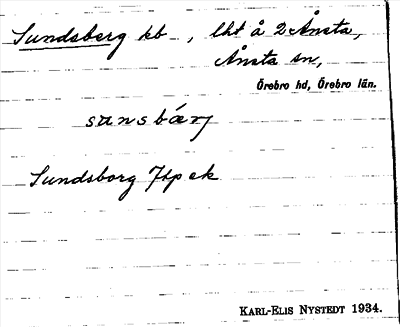 Sundsberg kb, lht å 2 Ånsta,
Ånsta sn,
Örebro hd, Örebro län.
sunsbærj
Sundsborg Jtp ek
KARL-ELIS NYSTEDT 1934.